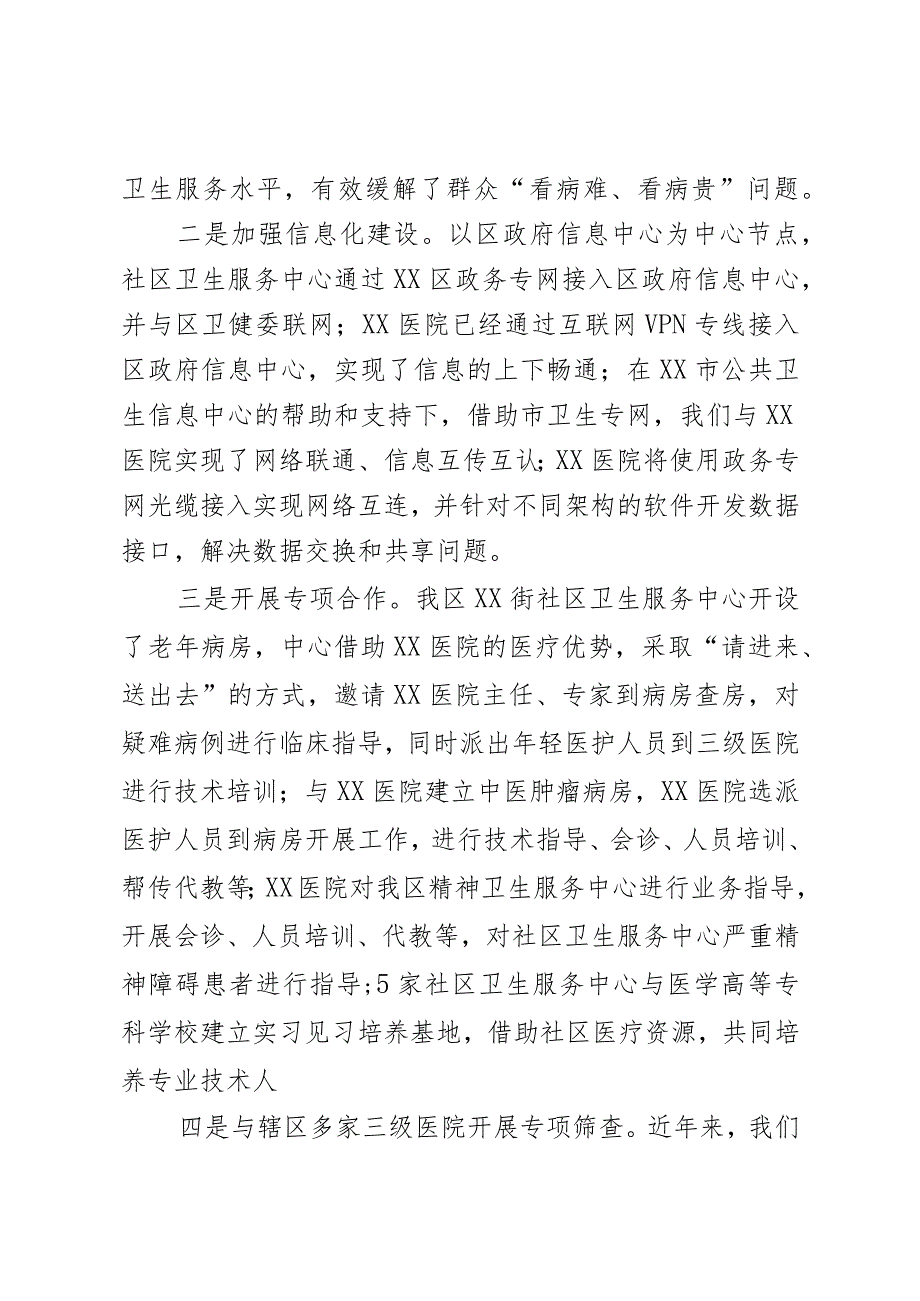 卫生服务水平，有效缓解了群众“看病难、看病贵”问题。
二是加强信息化建设。以区政府信息中心为中心节点，
社区卫生服务中心通过 XX 区政务专网接入区政府信息中心，
并与区卫健委联网；XX 医院已经通过互联网 VPN 专线接入
区政府信息中心，实现了信息的上下畅通；在 XX 市公共卫
生信息中心的帮助和支持下，借助市卫生专网，我们与 XX
医院实现了网络联通、信息互传互认；XX 医院将使用政务专
网光缆接入实现网络互连，并针对不同架构的软件开发数据
接口，解决数据交换和共享问题。
三是开展专项合作。我区 XX 街社区卫生服务中心开设
了老年病房，中心借助 XX 医院的医疗优势，采取“请进来、
送出去”的方式，邀请 XX 医院主任、专家到病房查房，对
疑难病例进行临床指导，同时派出年轻医护人员到三级医院
进行技术培训；与 XX 医院建立中医肿瘤病房，XX 医院选派
医护人员到病房开展工作，进行技术指导、会诊、人员培训、
帮传代教等；XX 医院对我区精神卫生服务中心进行业务指导，
开展会诊、人员培训、代教等，对社区卫生服务中心严重精
神障碍患者进行指导;5 家社区卫生服务中心与医学高等专
科学校建立实习见习培养基地，借助社区医疗资源，共同培
养专业技术人
四是与辖区多家三级医院开展专项筛查。近年来，我们